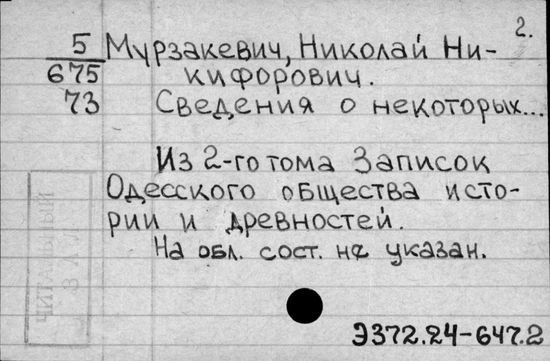 2.
5 Мурзакевич, Николай Ни-
675 кифорович.
73 Сведения о некоторых...
Из 2-го тома Записок
Одесского общества исто-
рии и древностей.
На обл. сост. не указан.
ЧИТАЛЬНЫЙ
ЗАЛ
Э372.24-647.2